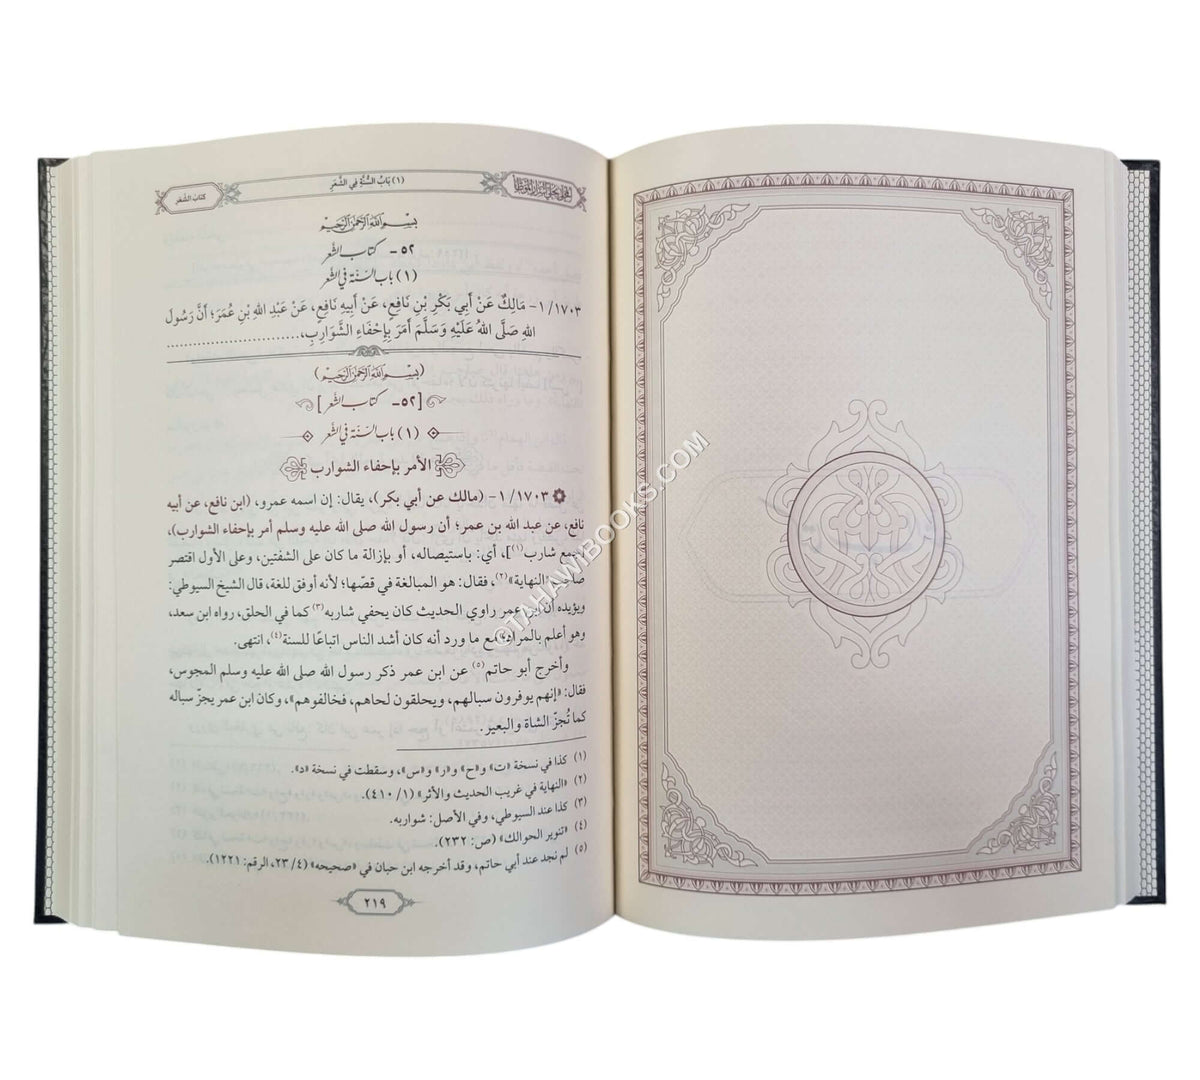 (١) بَابُ السُّنَّةِ فِي الشَّعَرِ
كتاب الشعر
بسم الله الرحمن الرحيم
٥٢- كتاب الشعر
(١) باب السنة في الشعر
١/١٧٠٣- مَالِكٌ عَنْ أَبِي بَكْرِ بْنِ نَافِعٍ، عَنْ أَبِيهِ نَافِعٍ، عَنْ عَبْدِ اللهِ بْنِ عُمَرَ؛ أَنَّ رَسُولَ
اللهِ صَلَّى اللهُ عَلَيْهِ وَسَلَّمَ أَمَرَ بِإِحْفَاءِ الشَّوَارِبِ،
(بسم الله الرحمن الرحيم)
[٥٢- كتاب الشعر]
(١) باب السنة في الشعر
الأمر بإحفاء الشوارب
١/١٧٠٣- (مالك عن أبي بكر)، يقال: إن اسمه عمرو، (ابن نافع، عن أبيه
نافع، عن عبد الله بن عمر؛ أن رسول الله صلى الله عليه وسلم أمر بإحفاء الشوارب)،
شارب(١)]، أي: باستيصاله، أو بإزالة ما كان على الشفتين، وعلى الأول اقتصر
النهاية»(٢)، فقال: هو المبالغة في قصّها؛ لأنه أوفق للغة، قال الشيخ السيوطي:
ويؤيده أن ابن عمر راوي الحديث كان يحفي شاربه(٣) كما في الحلق، رواه ابن سعد،
وهو أعلم بالمراد، مع ما ورد أنه كان أشد الناس اتباعًا للسنة(٤)، انتهى.
وأخرج أبو حاتم(٥) عن ابن عمر ذكر رسول الله صلى الله عليه وسلم المجوس،
فقال: «إنهم يوفرون سبالهم، ويحلقون لحاهم، فخالفوهم»، وكان ابن عمر يجزّ سباله
كما تُجزّ الشاة والبعير.
(١) كذا في نسخة «ت» و«ح» و«ر» و«س»، وسقطت في نسخة «د».
(٢) «النهاية في غريب الحديث والأثر» (١/ ٤١٠).
(٣) كذا عند السيوطي، وفي الأصل: شواربه.
(٤) «تنوير الحوالك» (ص: ٢٣٢).
(٥) لم نجد عند أبي حاتم، وقد أخرجه ابن حبان في «صحيحه» (٤/ ٢٣، الرقم: ١٢٢١).
٢١٩
TAHAWIBOOKS.COM